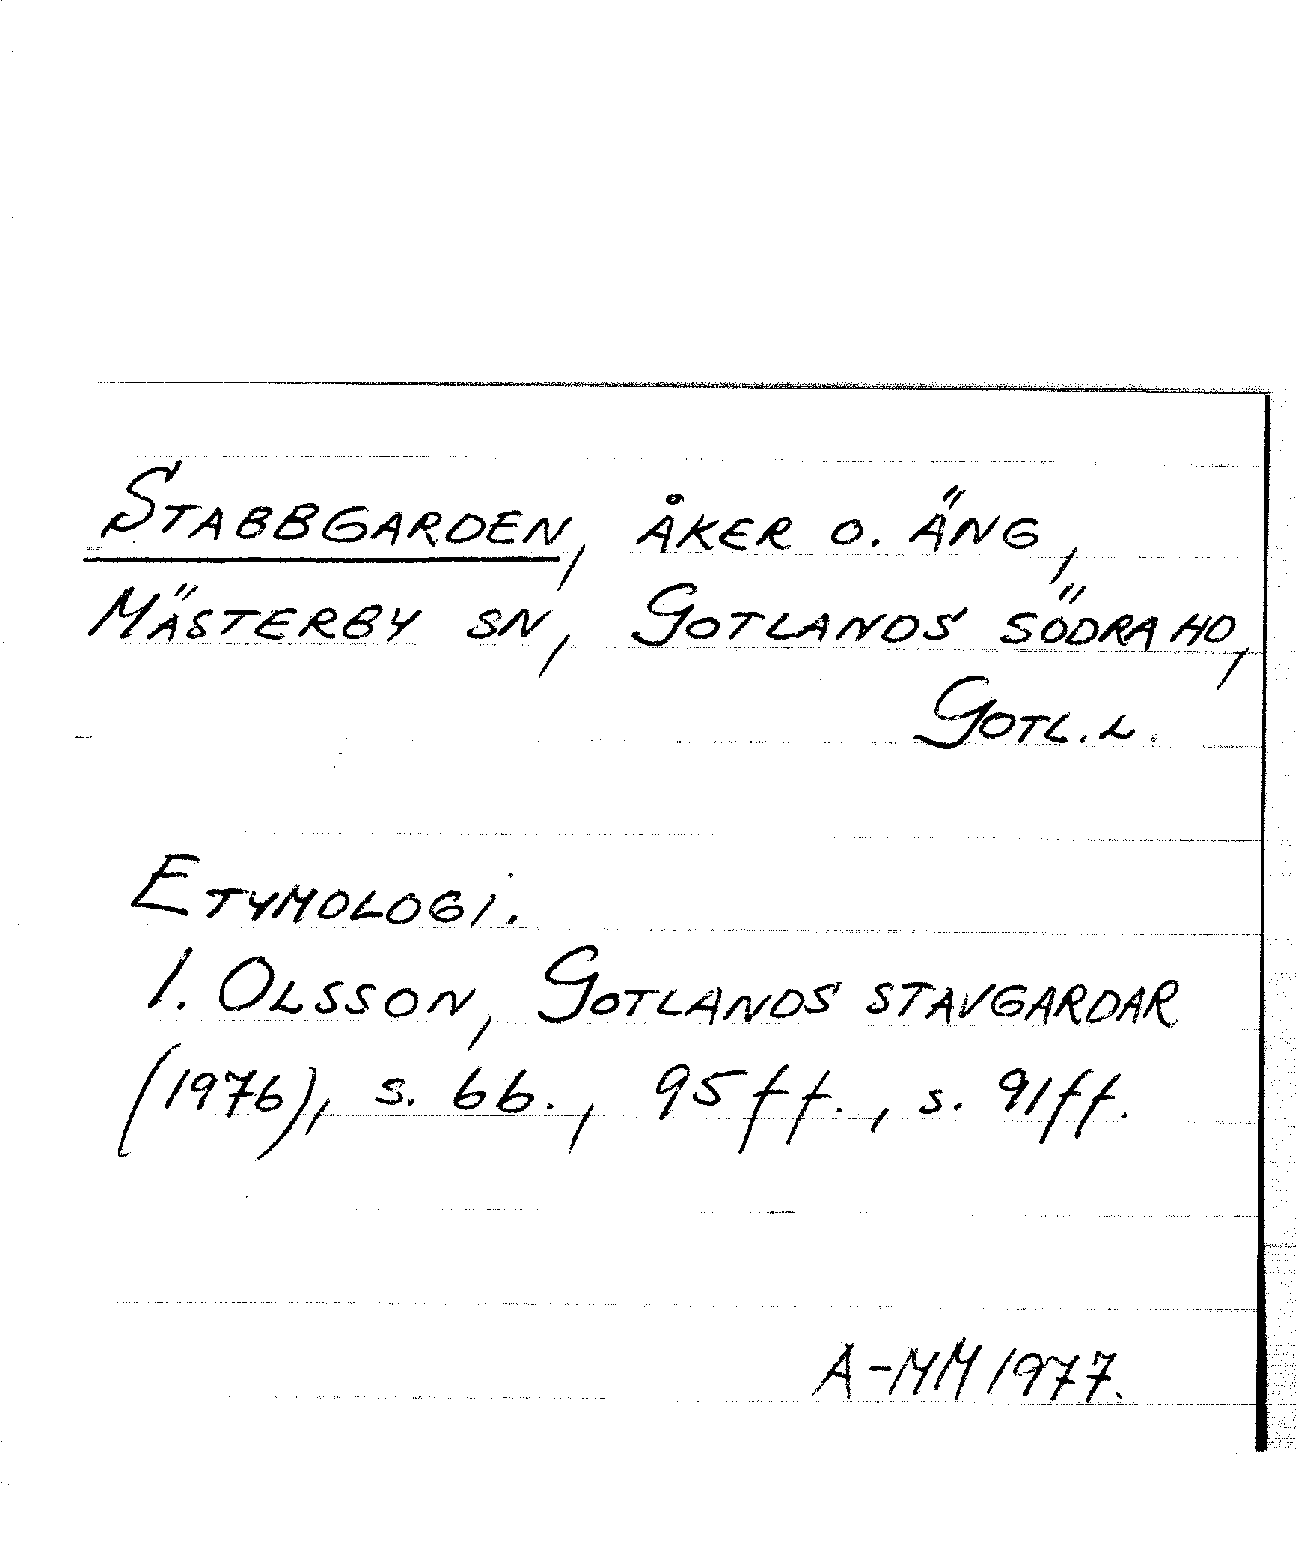 Stabbgarden, åker o. äng,
Mästerby sn, Gotlands södra hd,
Gotl. l.
Etymologi.
I. Olsson, Gotlands stavgardar
(1976), s. 66., 95 ff., s. 91 ff.
A-MM 1977.